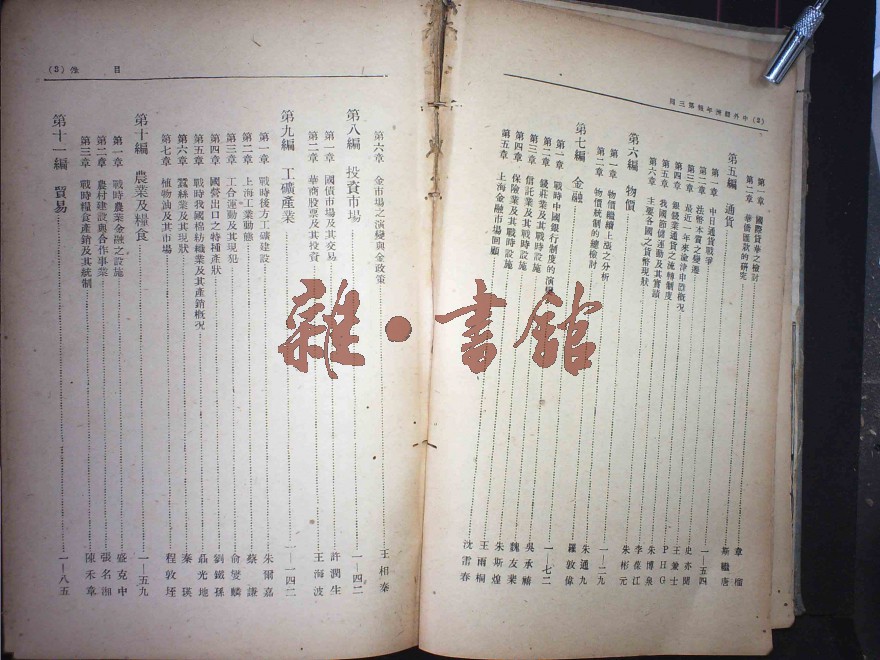 (2) 中外經濟年報第三回
第一章 國際貸華之檢討 章榴
第二章 華僑匯款的研究 斯繼唐
第五編 通貨 一—五四
第一章 中日通貨戰爭 史亦聞
第二章 法幣本質之變遷 王兼士
第三章 最近一年來渝津申匯概況 PHG
第四章 銀錢業通貨之流轉制度 朱博泉
第五章 我國節儲運動及其實績 李葆江
第六章 主要各國之貨幣現狀 朱彬元
第六編 物價 一—二九
第一章 物價繼續上漲之分析 朱通九
第二章 物價統制的總檢討 羅敦偉
第七編 金融 一—七二
第一章 戰時中國銀行制度的演變 吳承禧
第二章 錢莊業及其戰時設施 魏友棐
第三章 信託業及其戰時設施 朱斯煌
第四章 保險業及其戰時設施 王雨桐
第五章 上海金融市場回顧 沈雷春
目錄 (3)
第六章 金市場之演變與金政策 王相秦
第八編 投資市場 一—四二
第一章 國債市場及其交易 許潤生
第二章 華商股票及其投資 王海波
第九編 工礦產業 一—一四二
第一章 戰時後方工礦建設 朱爾嘉
第二章 上海工業動態 蔡謙
第三章 工合運動及其現況 俞燮麟
第四章 國營出口之特種產狀 劉鐵孫
第五章 戰時我國棉紡織業及其產銷概況 聶光地
第六章 蠶絲業及其現狀 秦瑛
第七章 植物油及其市場 程敦垤
第十編 農業及糧食 一—五九
第一章 戰時農業金融之設施 盛克中
第二章 農村建設與合作事業 張名湘
第三章 戰時糧食產銷及其統制 陳禾章
第十一編 貿易 一—八五
雜·書館